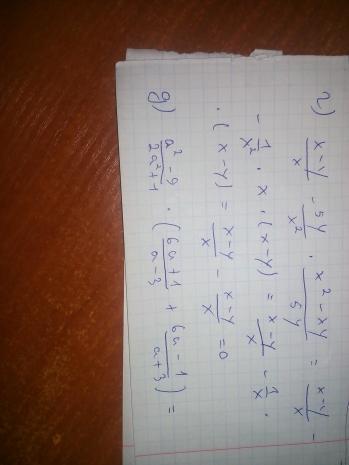 г) (x-y)/x - 5y/x² · (x²-xy)/5y = (x-y)/x -
- 1/x² · x · (x-y) = (x-y)/x - 1/x ·
· (x-y) = (x-y)/x - (x-y)/x = 0
д) (a²-9)/(2a²+1) · ((6a+1)/(a-3) + (6a-1)/(a+3)) =